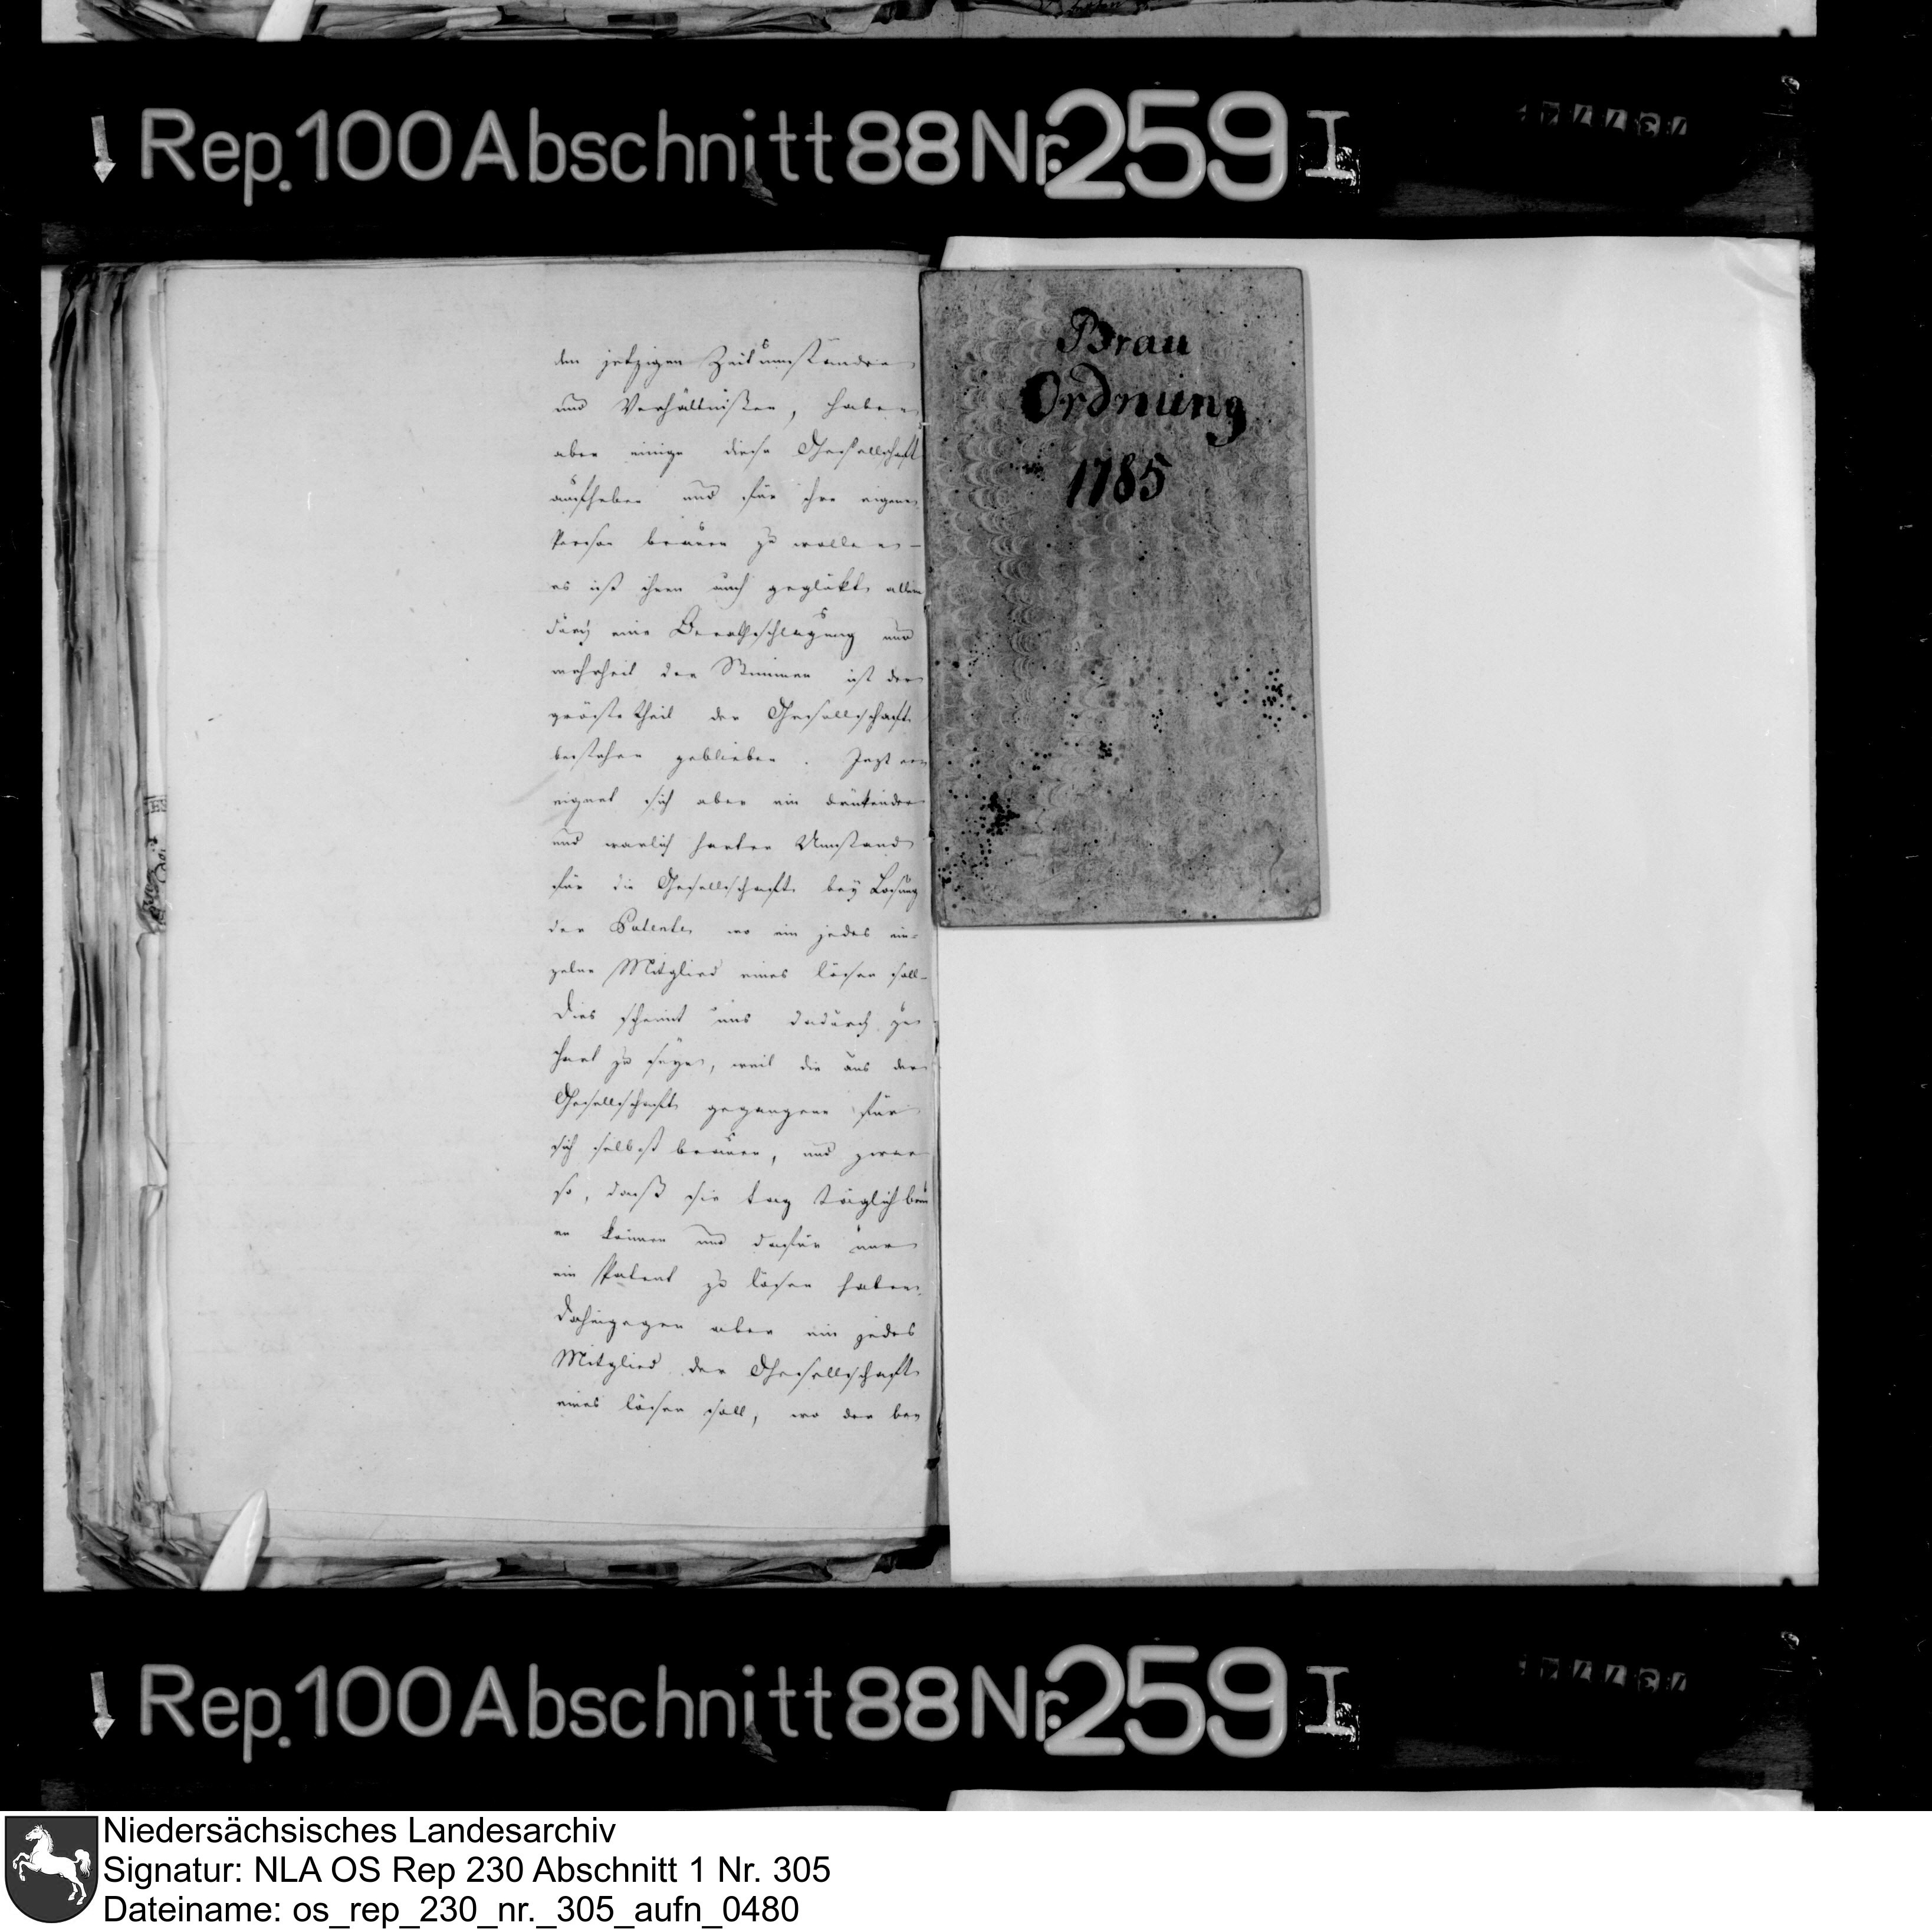 Rep. 100 Abschnitt 88 Nr. 259 I
den jetzigen Zeitumständen
und Verhältnißen, haben
aber einige diese Gesellschaft
aufheben und für ihre eigene
Person brauen zu wollen –
es ist ihnen auch geglükt, allein
durch eine Berathschlagung und
mehrheit der Stimmen ist der
gröste theil der Gesellschaft
bestehen geblieben. Jezt er
eignet sich aber ein drükender
und warlich harter Umstand
für die Gesellschaft bey Losung
der Patente, wo ein jedes ein-
zelne Mitglied eines lösen soll –
Dies scheint uns dadurch zu
hart zu seyn, weil die aus der
Gesellschaft gegangene für
sich selbst brauen, und zwar
so, daß sie tag täglich brau
en können und dafür nur
ein Patent zu lösen haben,
dahingegen aber ein jedes
Mitglied der Gesellschaft
eines lösen soll, wo der bey
Brau
Ordnung
1785
Rep. 100 Abschnitt 88 Nr. 259 I
Niedersächsisches Landesarchiv
Signatur: NLA OS Rep 230 Abschnitt 1 Nr. 305
Dateiname: os_rep_230_nr._305_aufn_0480